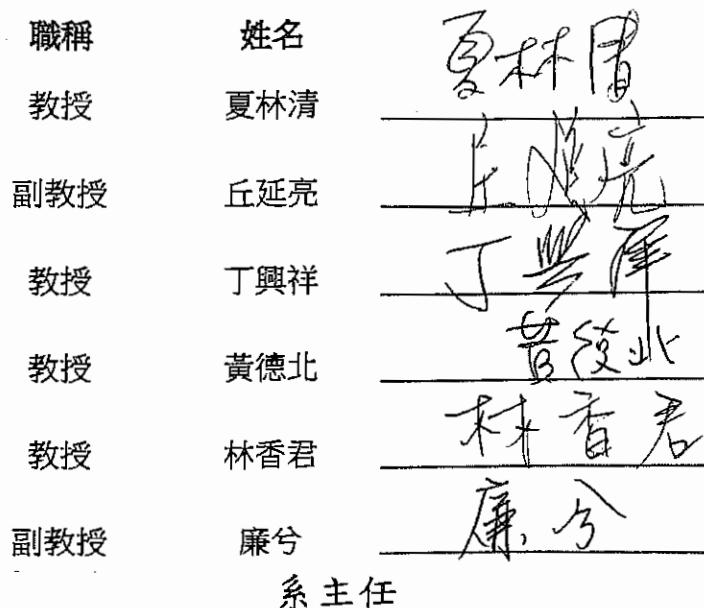 職稱 姓名
教授 夏林清 夏林清
副教授 丘延亮 丘延亮
教授 丁興祥 丁興祥
教授 黃德北 黃德北
教授 林香君 林香君
副教授 廉兮 廉兮
系主任